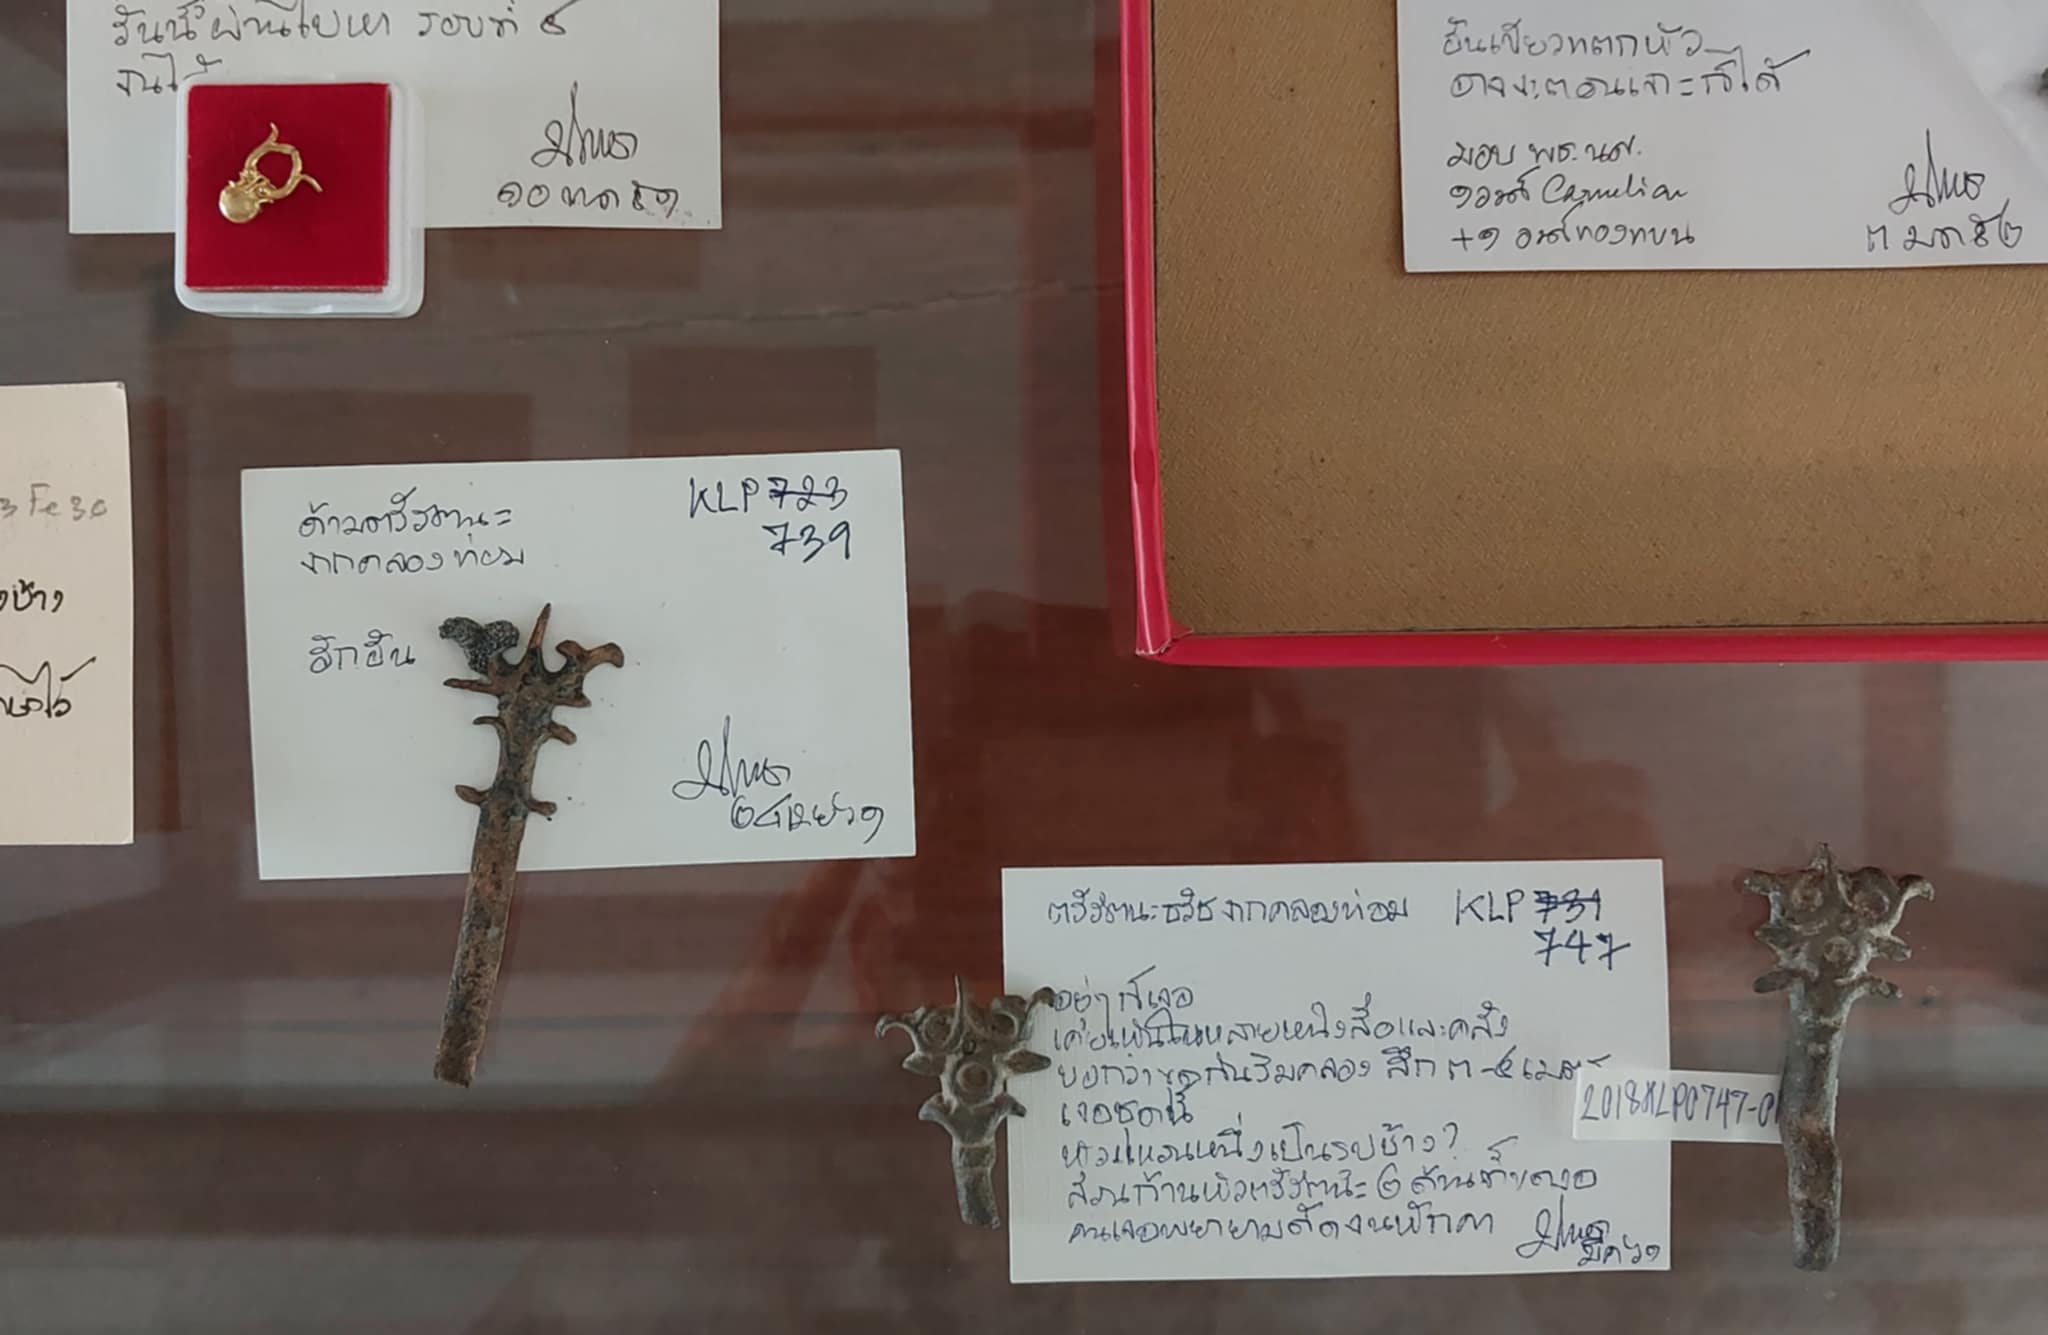 วันนี้ผ่านไปหา รอบที่ ๕
จนได้
๑๐ ๗๑
อันเขียวแตกหัว
อาจจะตอนเจาะก็ได้
มอบ พธ.นศ.
๑ องค์ Carnelian
+๑ องค์ทองแบน
๓ มค ๕๒
3 Fe 30
ช้าง
ไว้
ด้ามตรีรัตนะ KLP 723
จากคลองท่อม 739
อีกอัน
๒๕ เมย ๖๑
ตรีรัตนะธวัชจากคลองท่อม KLP 731
747
อยู่ๆ ก็เจอ
เคยเห็นในหลายหนังสือและคลัง
บอกว่าขุดกันริมคลอง ลึก ๓-๕ เมตร
เจอชุดนี้
หัวแหวนหนึ่งเป็นรูปช้าง?
ส่วนก้านหัวตรีรัตนะ ๒ ด้านที่งอ
คนเจอพยายามดัดจนหักคา
มีค ๖๑
2018KLP0747-01